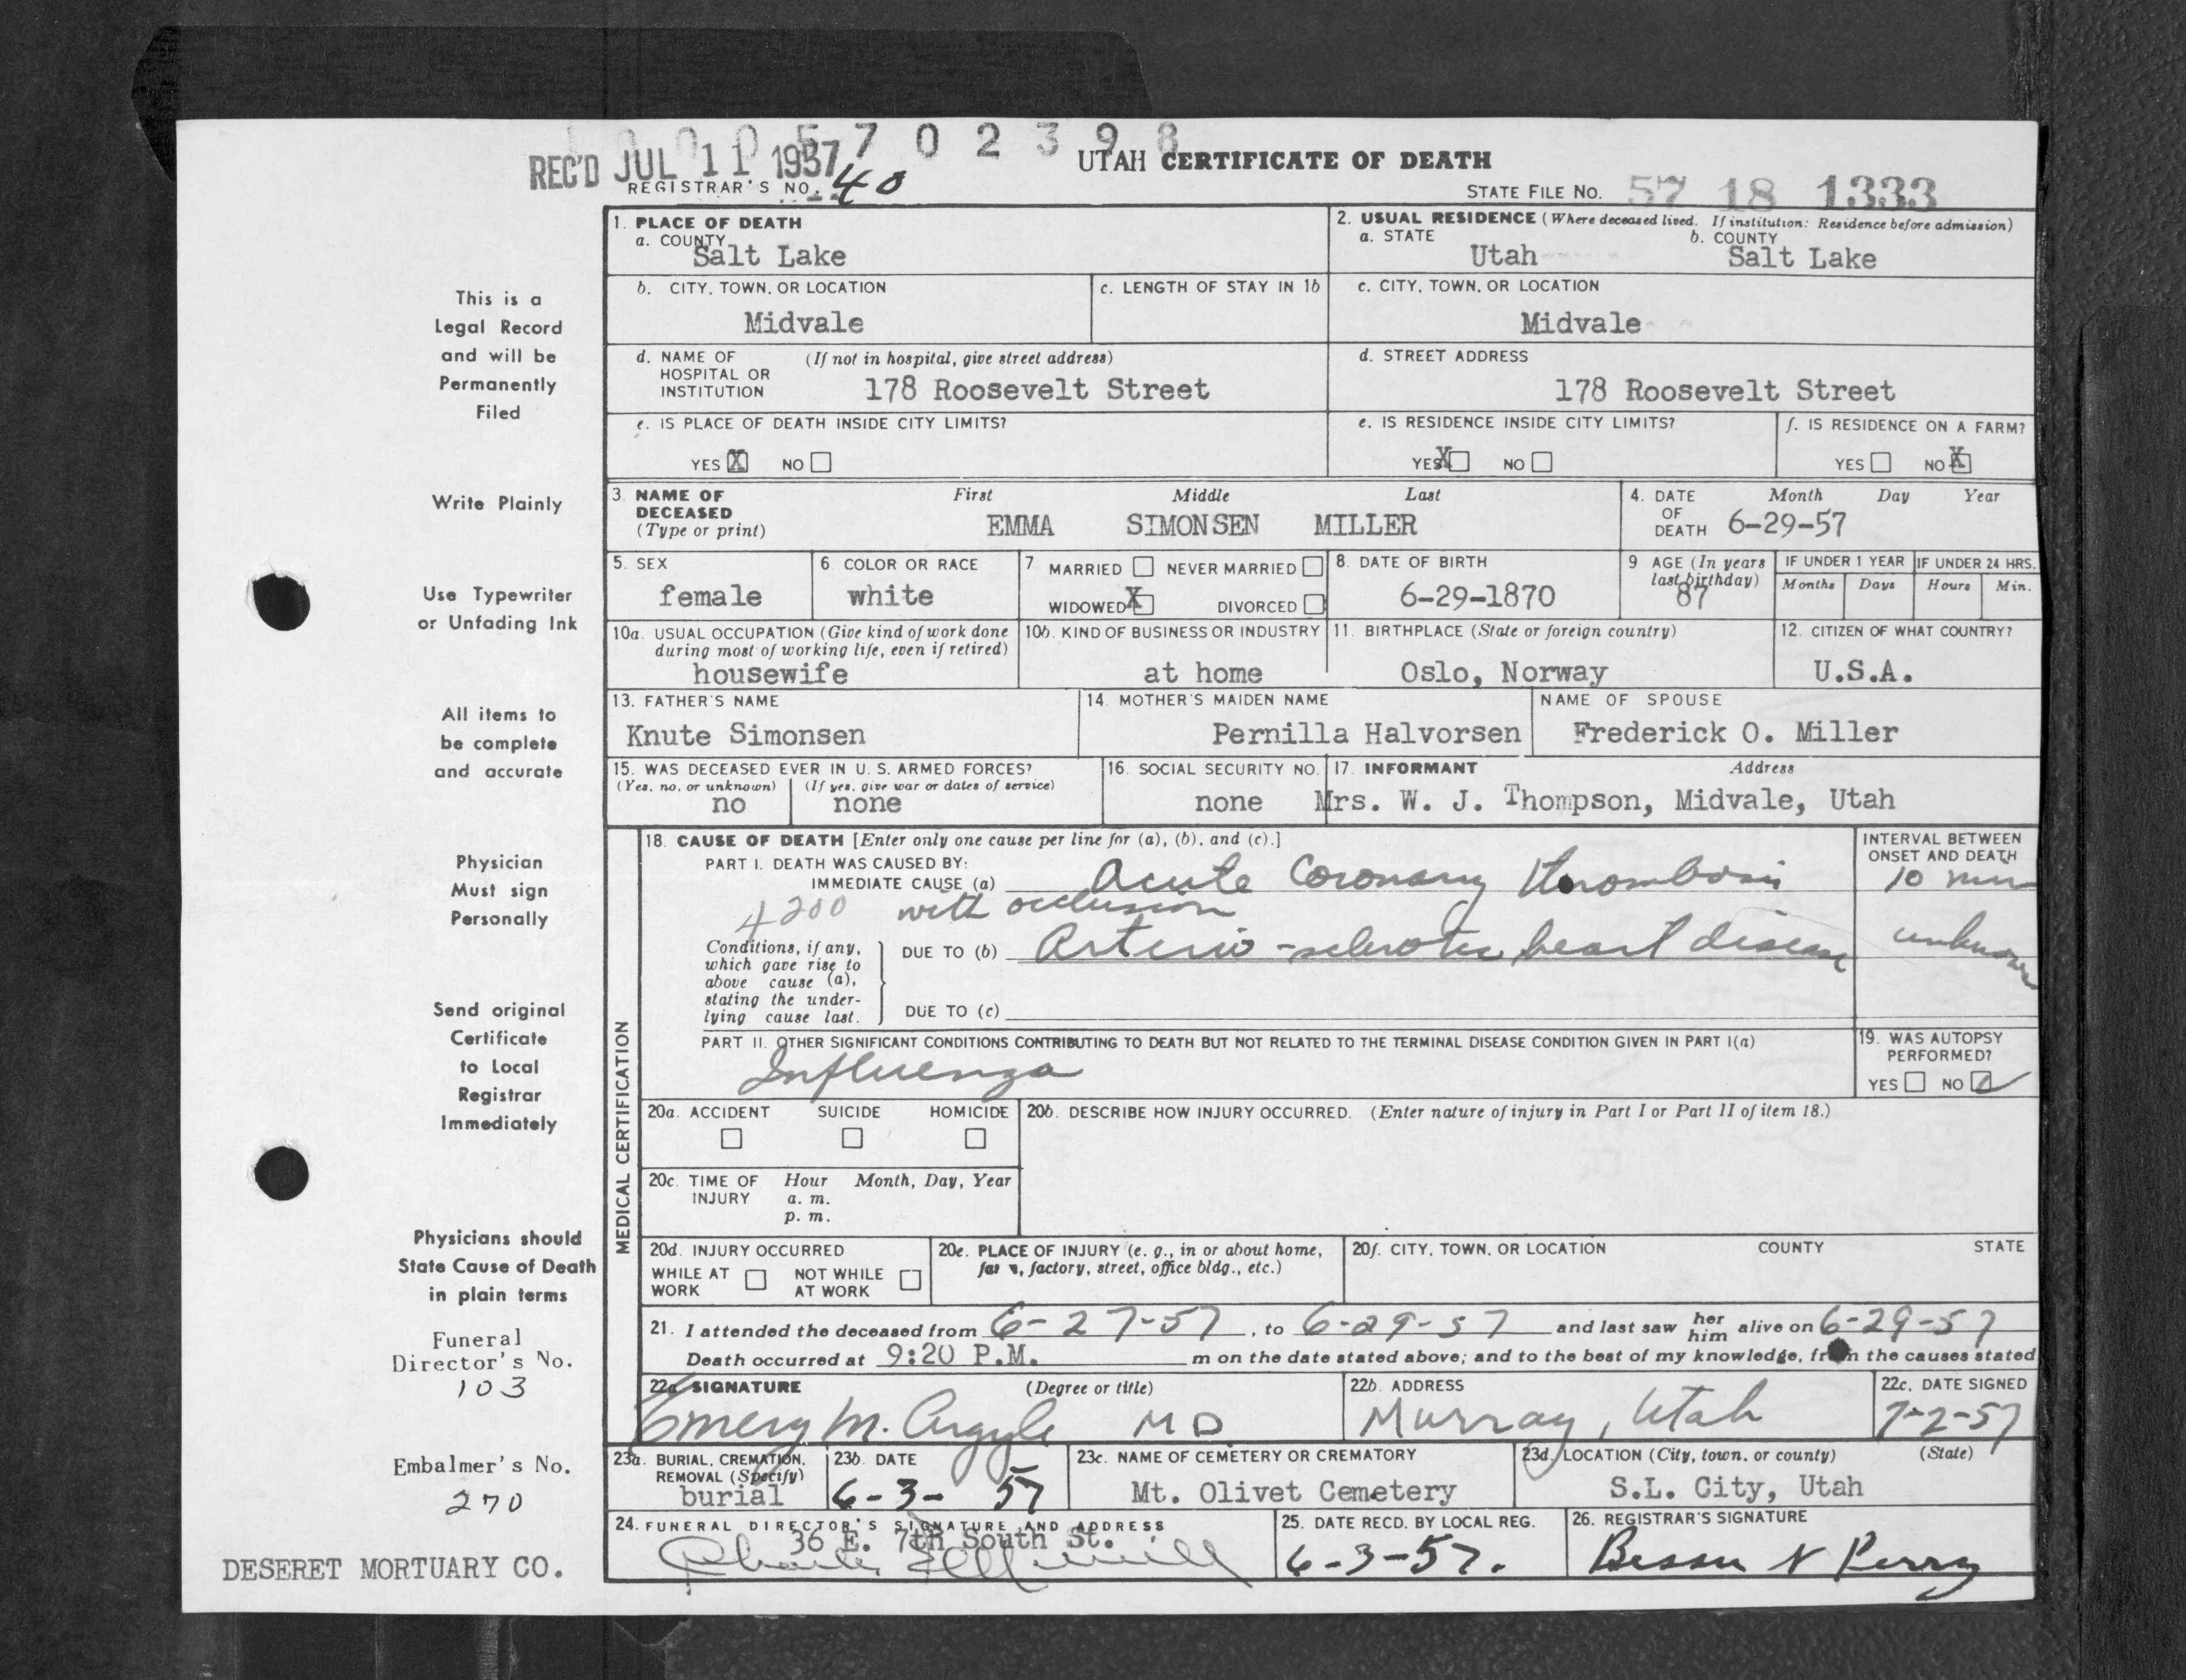 1 0 0 0 5 7 0 2 3 9 8
REC'D JUL 11 1957
UTAH CERTIFICATE OF DEATH
REGISTRAR'S NO. 40
STATE FILE NO. 57 18 1333
1. PLACE OF DEATH
a. COUNTY Salt Lake
2. USUAL RESIDENCE (Where deceased lived. If institution: Residence before admission)
a. STATE Utah b. COUNTY Salt Lake
b. CITY, TOWN, OR LOCATION Midvale
c. LENGTH OF STAY IN 1b
c. CITY, TOWN, OR LOCATION Midvale
d. NAME OF HOSPITAL OR INSTITUTION (If not in hospital, give street address) 178 Roosevelt Street
d. STREET ADDRESS 178 Roosevelt Street
e. IS PLACE OF DEATH INSIDE CITY LIMITS?
YES X NO
e. IS RESIDENCE INSIDE CITY LIMITS?
YES X NO
f. IS RESIDENCE ON A FARM?
YES NO X
3. NAME OF DECEASED (Type or print)
First Middle Last
EMMA SIMONSEN MILLER
4. DATE OF DEATH Month Day Year
6-29-57
5. SEX female
6 COLOR OR RACE white
7 MARRIED NEVER MARRIED
WIDOWED X DIVORCED
8. DATE OF BIRTH 6-29-1870
9 AGE (In years last birthday) 87
IF UNDER 1 YEAR Months Days
IF UNDER 24 HRS. Hours Min.
10a. USUAL OCCUPATION (Give kind of work done during most of working life, even if retired) housewife
10b. KIND OF BUSINESS OR INDUSTRY at home
11. BIRTHPLACE (State or foreign country) Oslo, Norway
12. CITIZEN OF WHAT COUNTRY? U.S.A.
13. FATHER'S NAME Knute Simonsen
14. MOTHER'S MAIDEN NAME Pernilla Halvorsen
NAME OF SPOUSE Frederick O. Miller
15. WAS DECEASED EVER IN U. S. ARMED FORCES?
(Yes, no, or unknown) no (If yes, give war or dates of service) none
16. SOCIAL SECURITY NO. none
17. INFORMANT Address
Mrs. W. J. Thompson, Midvale, Utah
MEDICAL CERTIFICATION
18. CAUSE OF DEATH [Enter only one cause per line for (a), (b), and (c).]
PART I. DEATH WAS CAUSED BY:
IMMEDIATE CAUSE (a) Acute Coronary Thrombosis
4200 with occlusion
INTERVAL BETWEEN ONSET AND DEATH
10 min
Conditions, if any, which gave rise to above cause (a), stating the underlying cause last.
DUE TO (b) Arterio-sclerotic heart disease
unknown
DUE TO (c)
PART II. OTHER SIGNIFICANT CONDITIONS CONTRIBUTING TO DEATH BUT NOT RELATED TO THE TERMINAL DISEASE CONDITION GIVEN IN PART I(a)
Influenza
19. WAS AUTOPSY PERFORMED?
YES NO
20a. ACCIDENT SUICIDE HOMICIDE
20b. DESCRIBE HOW INJURY OCCURRED. (Enter nature of injury in Part I or Part II of item 18.)
20c. TIME OF INJURY Hour Month, Day, Year
a. m.
p. m.
20d. INJURY OCCURRED
WHILE AT WORK NOT WHILE AT WORK
20e. PLACE OF INJURY (e. g., in or about home, farm, factory, street, office bldg., etc.)
20f. CITY, TOWN, OR LOCATION COUNTY STATE
21. I attended the deceased from 6-27-57, to 6-29-57 and last saw her him alive on 6-29-57
Death occurred at 9:20 P.M. m on the date stated above; and to the best of my knowledge, from the causes stated
22a SIGNATURE (Degree or title)
Emery M. Argyle MD
22b. ADDRESS Murray, Utah
22c. DATE SIGNED 7-2-57
23a. BURIAL, CREMATION, REMOVAL (Specify) burial
23b. DATE 6-3-57
23c. NAME OF CEMETERY OR CREMATORY Mt. Olivet Cemetery
23d. LOCATION (City, town, or county) (State)
S.L. City, Utah
24. FUNERAL DIRECTOR'S SIGNATURE AND ADDRESS
36 E. 7th South St.
25. DATE RECD. BY LOCAL REG. 6-3-57.
26. REGISTRAR'S SIGNATURE
Bessie N Perry
This is a
Legal Record
and will be
Permanently
Filed
Write Plainly
Use Typewriter
or Unfading Ink
All items to
be complete
and accurate
Physician
Must sign
Personally
Send original
Certificate
to Local
Registrar
Immediately
Physicians should
State Cause of Death
in plain terms
Funeral
Director's No.
103
Embalmer's No.
270
DESERET MORTUARY CO.